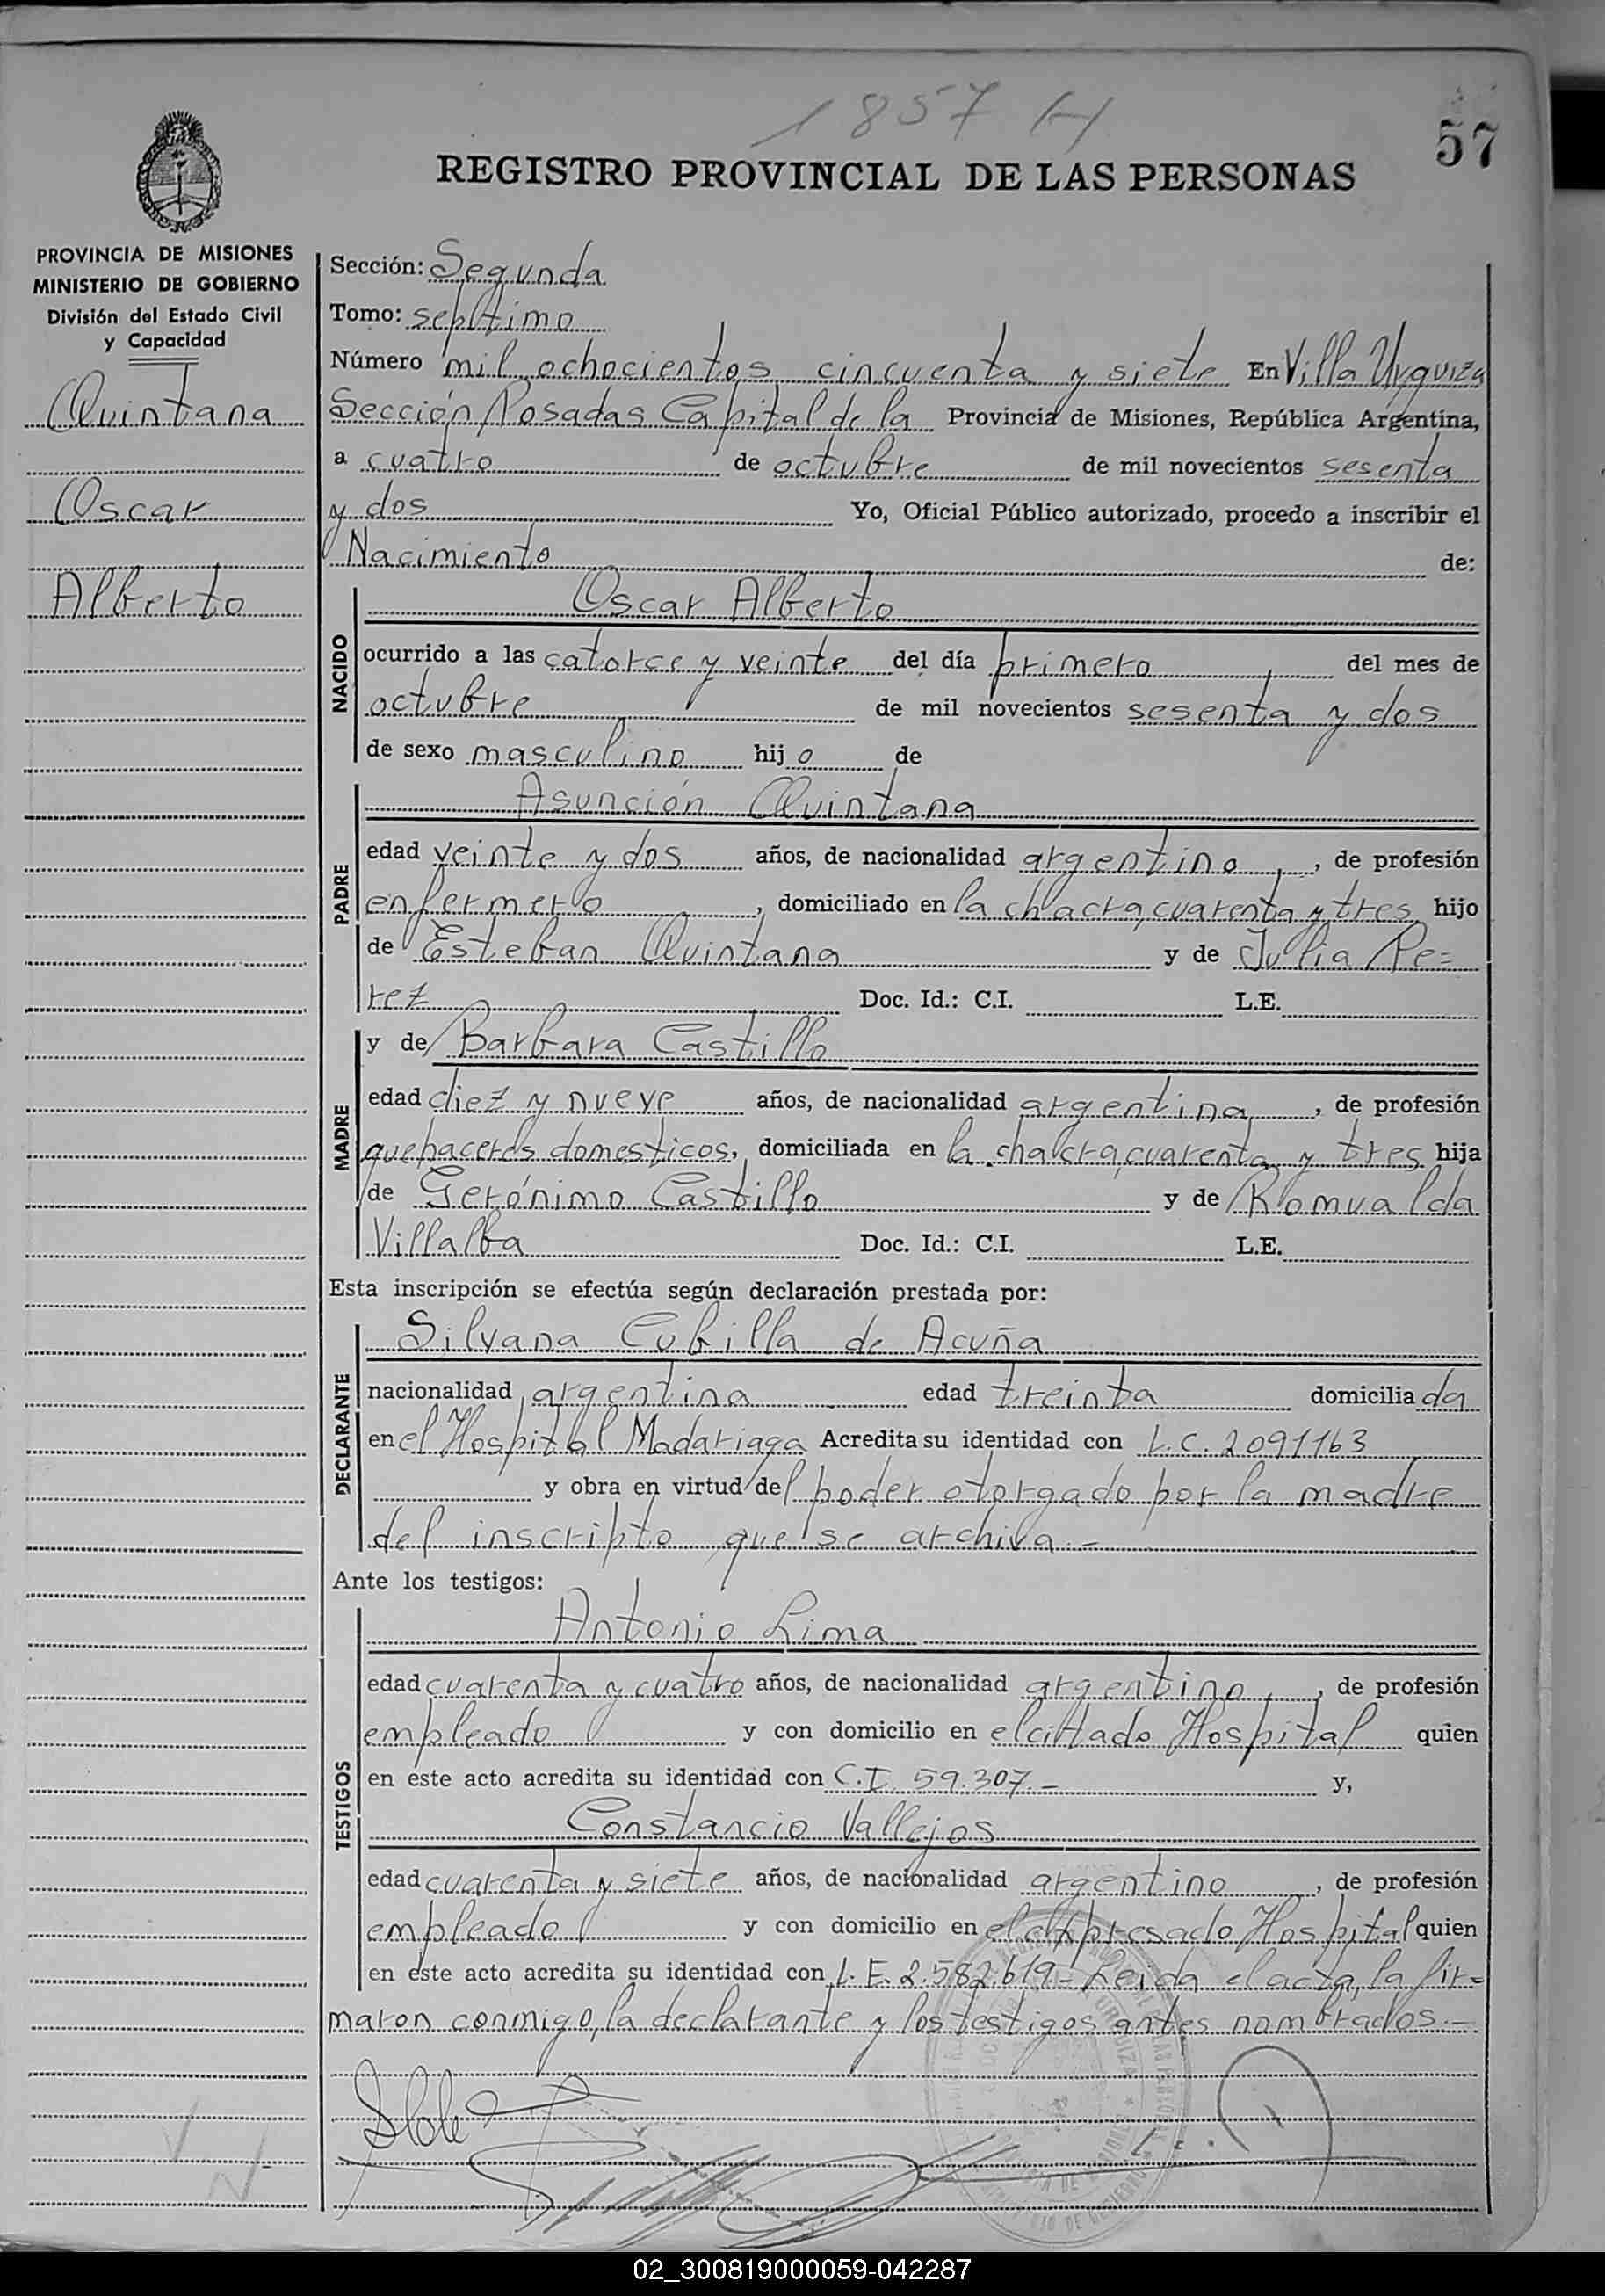 1857 H
57
REGISTRO PROVINCIAL DE LAS PERSONAS
PROVINCIA DE MISIONES
MINISTERIO DE GOBIERNO
División del Estado Civil
y Capacidad
Quintana
Oscar
Alberto
Sección: Segunda
Tomo: septimo
Número mil ochocientos cincuenta y siete En Villa Urquiza
Sección Posadas Capital de la Provincia de Misiones, República Argentina,
a cuatro de octubre de mil novecientos sesenta
y dos Yo, Oficial Público autorizado, procedo a inscribir el
Nacimiento de:
NACIDO
Oscar Alberto
ocurrido a las catorce y veinte del día primero del mes de
octubre de mil novecientos sesenta y dos
de sexo masculino hijo de
PADRE
Asunción Quintana
edad veinte y dos años, de nacionalidad argentino, de profesión
enfermero, domiciliado en la chacra cuarenta y tres, hijo
de Esteban Quintana y de Julia Pe=
rez Doc. Id.: C.I. L.E.
MADRE
y de Barbara Castillo
edad diez y nueve años, de nacionalidad argentina, de profesión
quehaceres domesticos, domiciliada en la chacra cuarenta y tres hija
de Gerónimo Castillo y de Romualda
Villalba Doc. Id.: C.I. L.E.
Esta inscripción se efectúa según declaración prestada por:
DECLARANTE
Silvana Cubilla de Acuña
nacionalidad argentina edad treinta domiciliada
en el Hospital Madariaga Acredita su identidad con L.C. 2091163
y obra en virtud del poder otorgado por la madre
del inscripto que se archiva.-
Ante los testigos:
TESTIGOS
Antonio Lima
edad cuarenta y cuatro años, de nacionalidad argentino, de profesión
empleado y con domicilio en el citado Hospital quien
en este acto acredita su identidad con C.I. 59.307.- y,
Constancio Vallejos
edad cuarenta y siete años, de nacionalidad argentino, de profesión
empleado y con domicilio en el expresado Hospital quien
en este acto acredita su identidad con L.E. 2.582.619.- Leida el acta, la fir=
maron conmigo, la declarante y los testigos antes nombrados.-
02_300819000059-042287